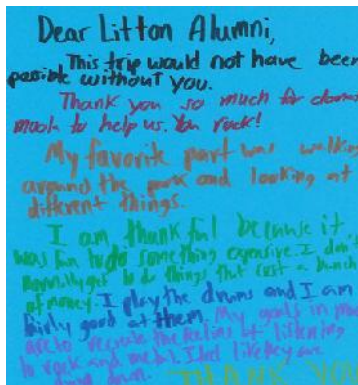 Dear Litton Alumni,
This trip would not have been
possible without you.
Thank you so much for
much to help us. You rock!
My favorite part was walking
around the park and looking at
different things.
I am thankful because it
was fun to do something expensive. I don't
normally get to do things that cost a bunch
of money. I play the drums and I am
fairly good at them. My goals in
are to recreate the feeling of listening
to rock and metal. I feel like they are
down.
THANK YOU